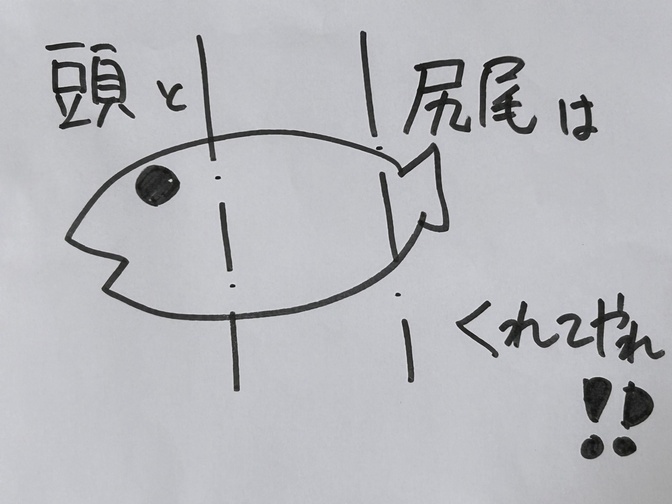 頭と尻尾は
くれてやれ
!!